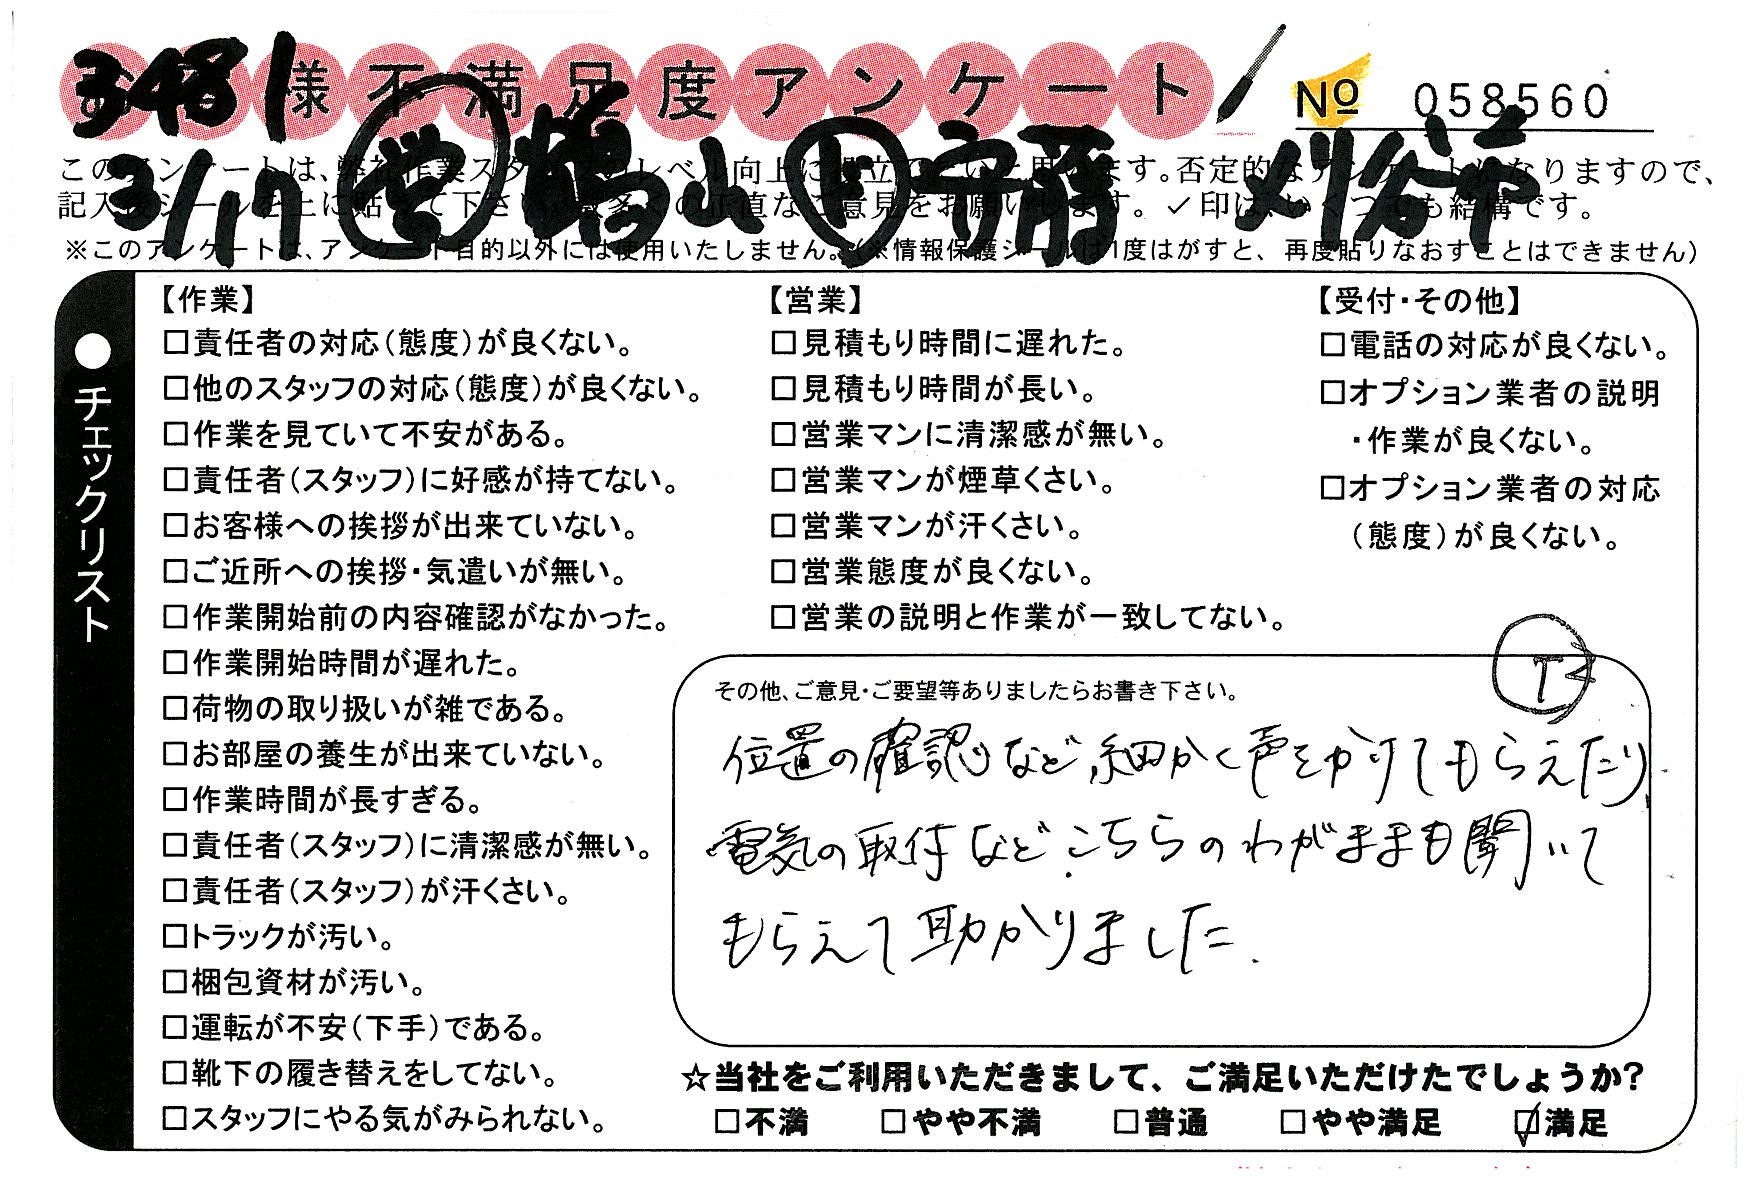 3481
様不満足度アンケート
№ 058560
3/17 営 鶴山 ト 守隨 刈谷市
このアンケートは、弊社作業スタッフのレベル向上に役立てたいと思います。否定的なアンケートになりますので、
記入後シールを上に貼って下さい。数多くの正直なご意見をお願いします。✓印は、いくつでも結構です。
※このアンケートは、アンケート目的以外には使用いたしません。(※情報保護シールは1度はがすと、再度貼りなおすことはできません)
●チェックリスト
【作業】
□責任者の対応(態度)が良くない。
□他のスタッフの対応(態度)が良くない。
□作業を見ていて不安がある。
□責任者(スタッフ)に好感が持てない。
□お客様への挨拶が出来ていない。
□ご近所への挨拶・気遣いが無い。
□作業開始前の内容確認がなかった。
□作業開始時間が遅れた。
□荷物の取り扱いが雑である。
□お部屋の養生が出来ていない。
□作業時間が長すぎる。
□責任者(スタッフ)に清潔感が無い。
□責任者(スタッフ)が汗くさい。
□トラックが汚い。
□梱包資材が汚い。
□運転が不安(下手)である。
□靴下の履き替えをしてない。
□スタッフにやる気がみられない。
【営業】
□見積もり時間に遅れた。
□見積もり時間が長い。
□営業マンに清潔感が無い。
□営業マンが煙草くさい。
□営業マンが汗くさい。
□営業態度が良くない。
□営業の説明と作業が一致してない。
【受付・その他】
□電話の対応が良くない。
□オプション業者の説明
・作業が良くない。
□オプション業者の対応
(態度)が良くない。
その他、ご意見・ご要望等ありましたらお書き下さい。
位置の確認など、細かく声をかけてもらえたり、
電気の取付など、こちらのわがままも聞いて
もらえて助かりました.
☆当社をご利用いただきまして、ご満足いただけたでしょうか?
□不満 □やや不満 □普通 □やや満足 ☑満足